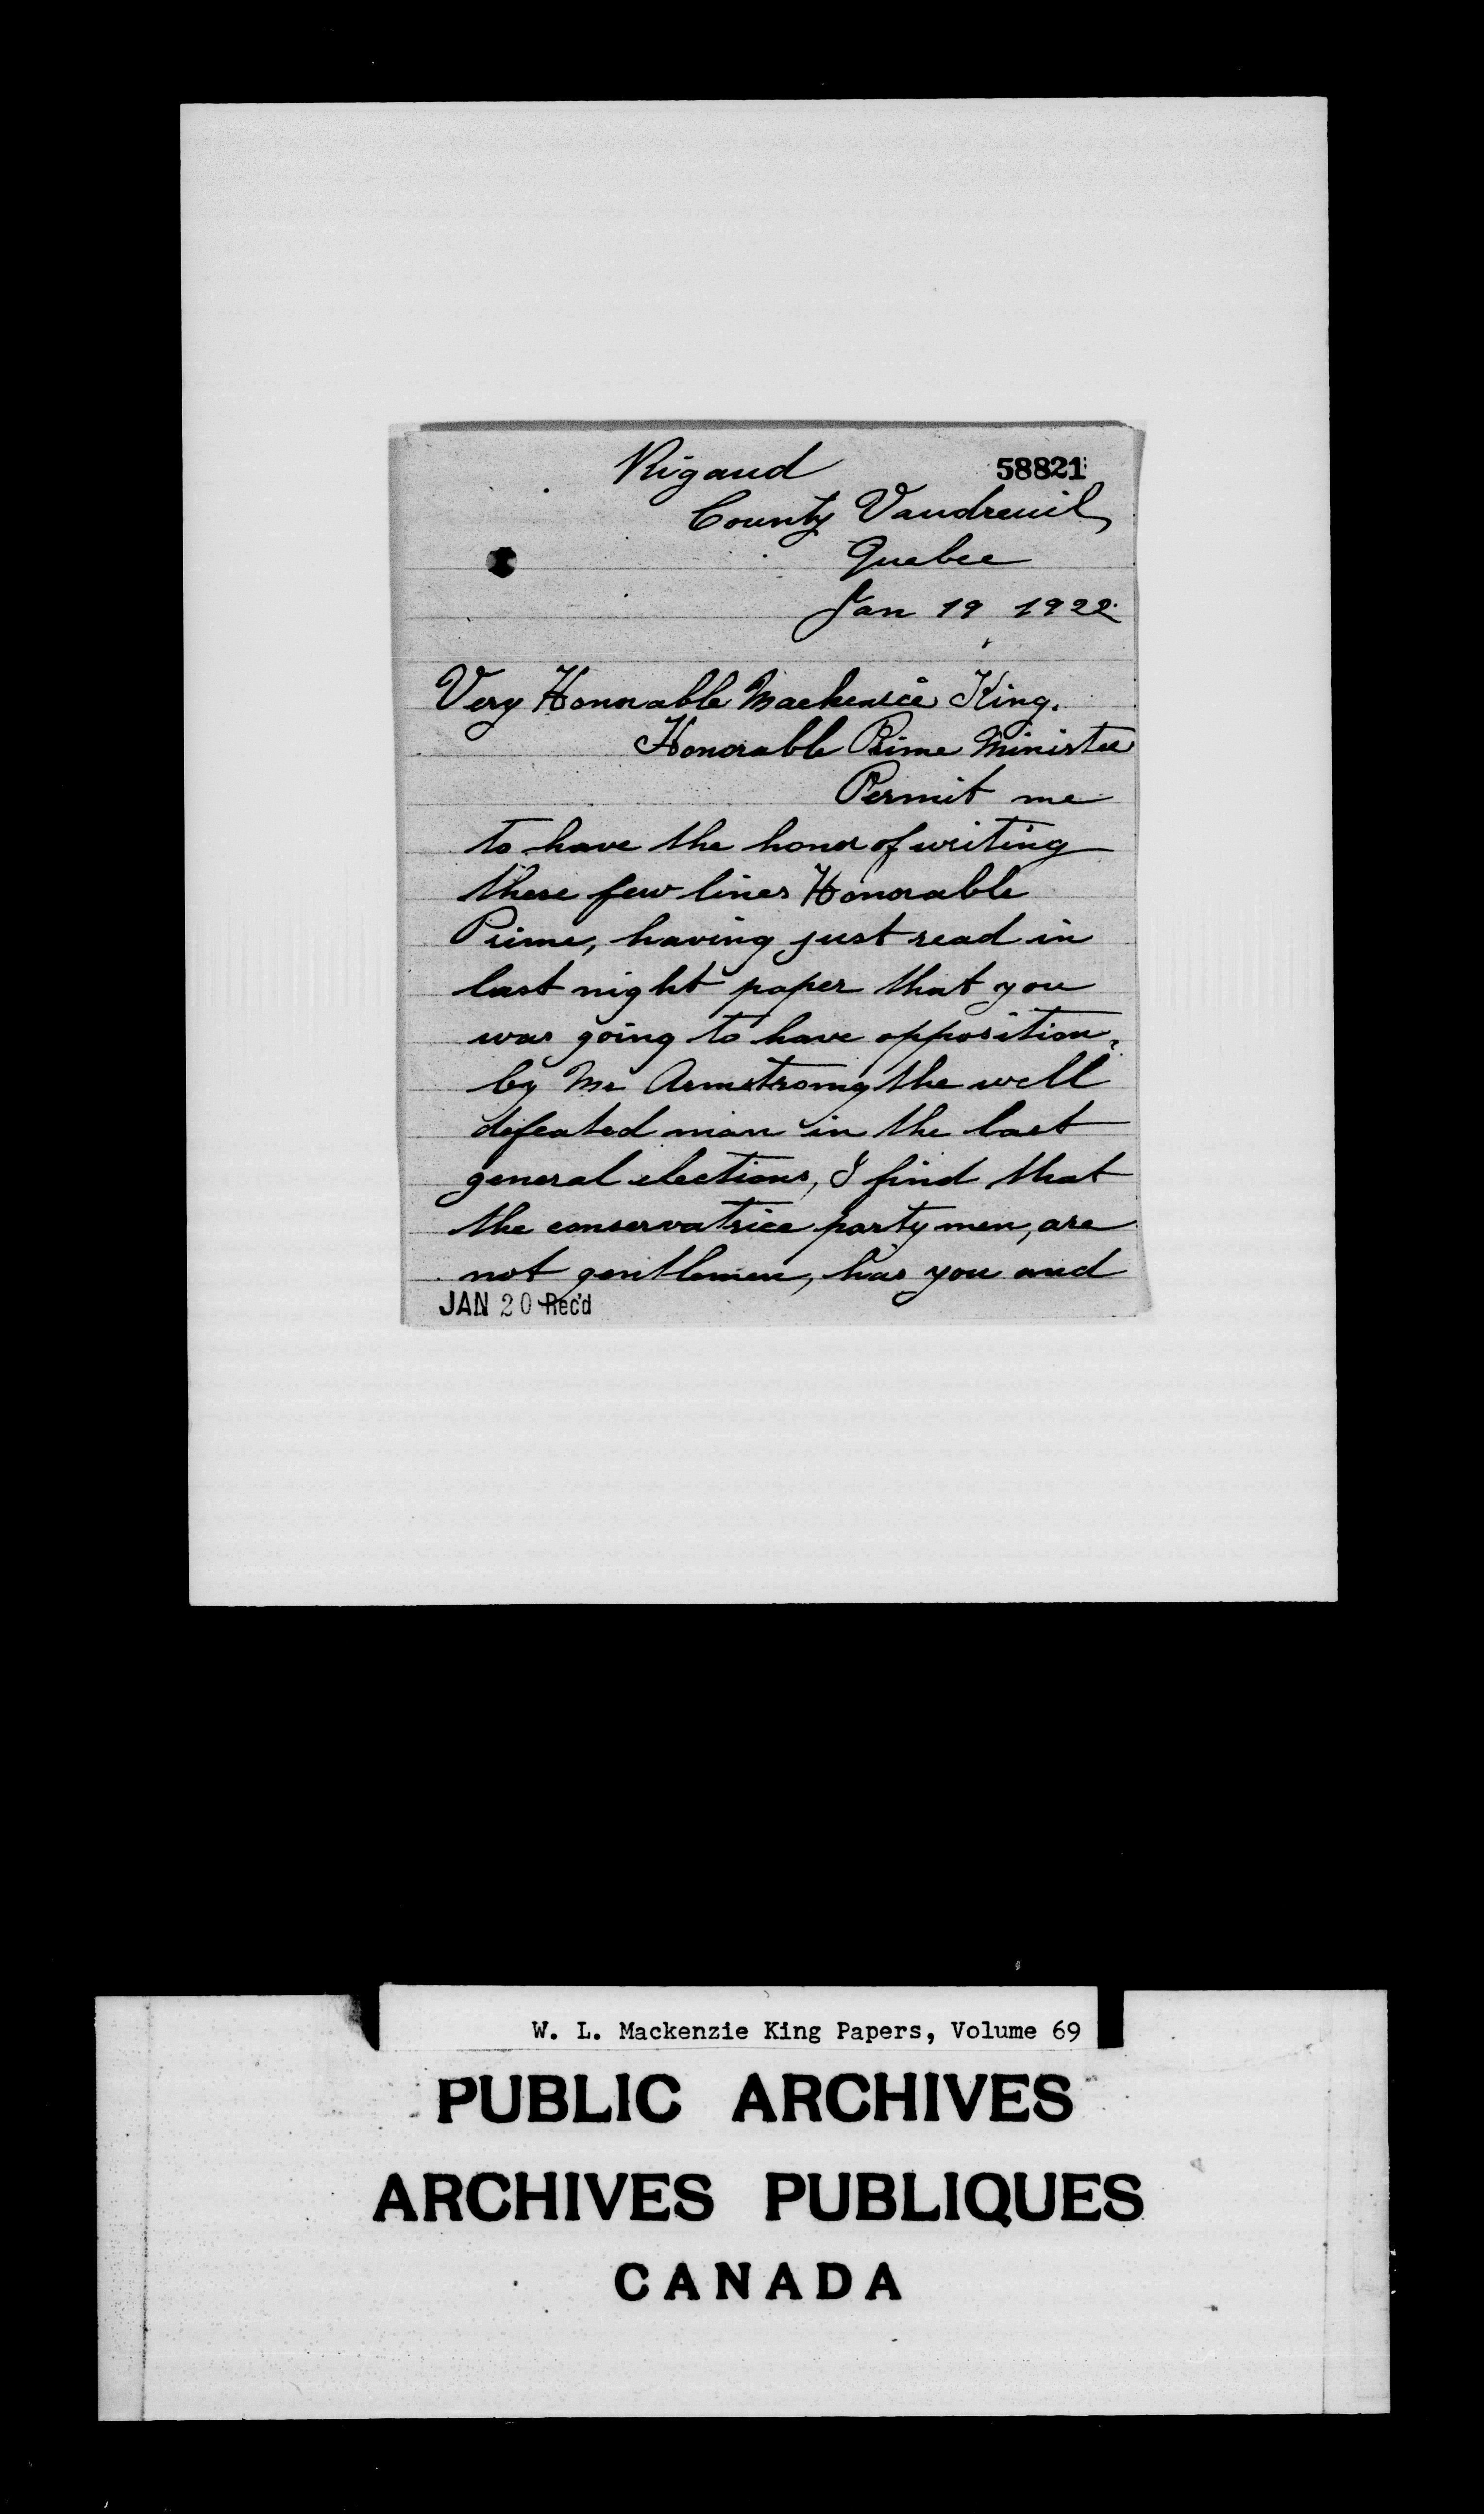 Rigaud
58821
County Vaudreuil,
Quebec
Jan 19 1922
Very Honorable Mackenzie King.
Honorable Prime Minister
Permit me
to have the honor of writing
these few lines Honorable
Prime, having just read in
last night paper that you
was going to have opposition,
by Mr Armstrong the well
defeated man in the last
general elections, I find that
the conservatrice party men, are
not gentlemen, has you and
JAN 20 Rec'd
W. L. Mackenzie King Papers, Volume 69
PUBLIC ARCHIVES
ARCHIVES PUBLIQUES
CANADA